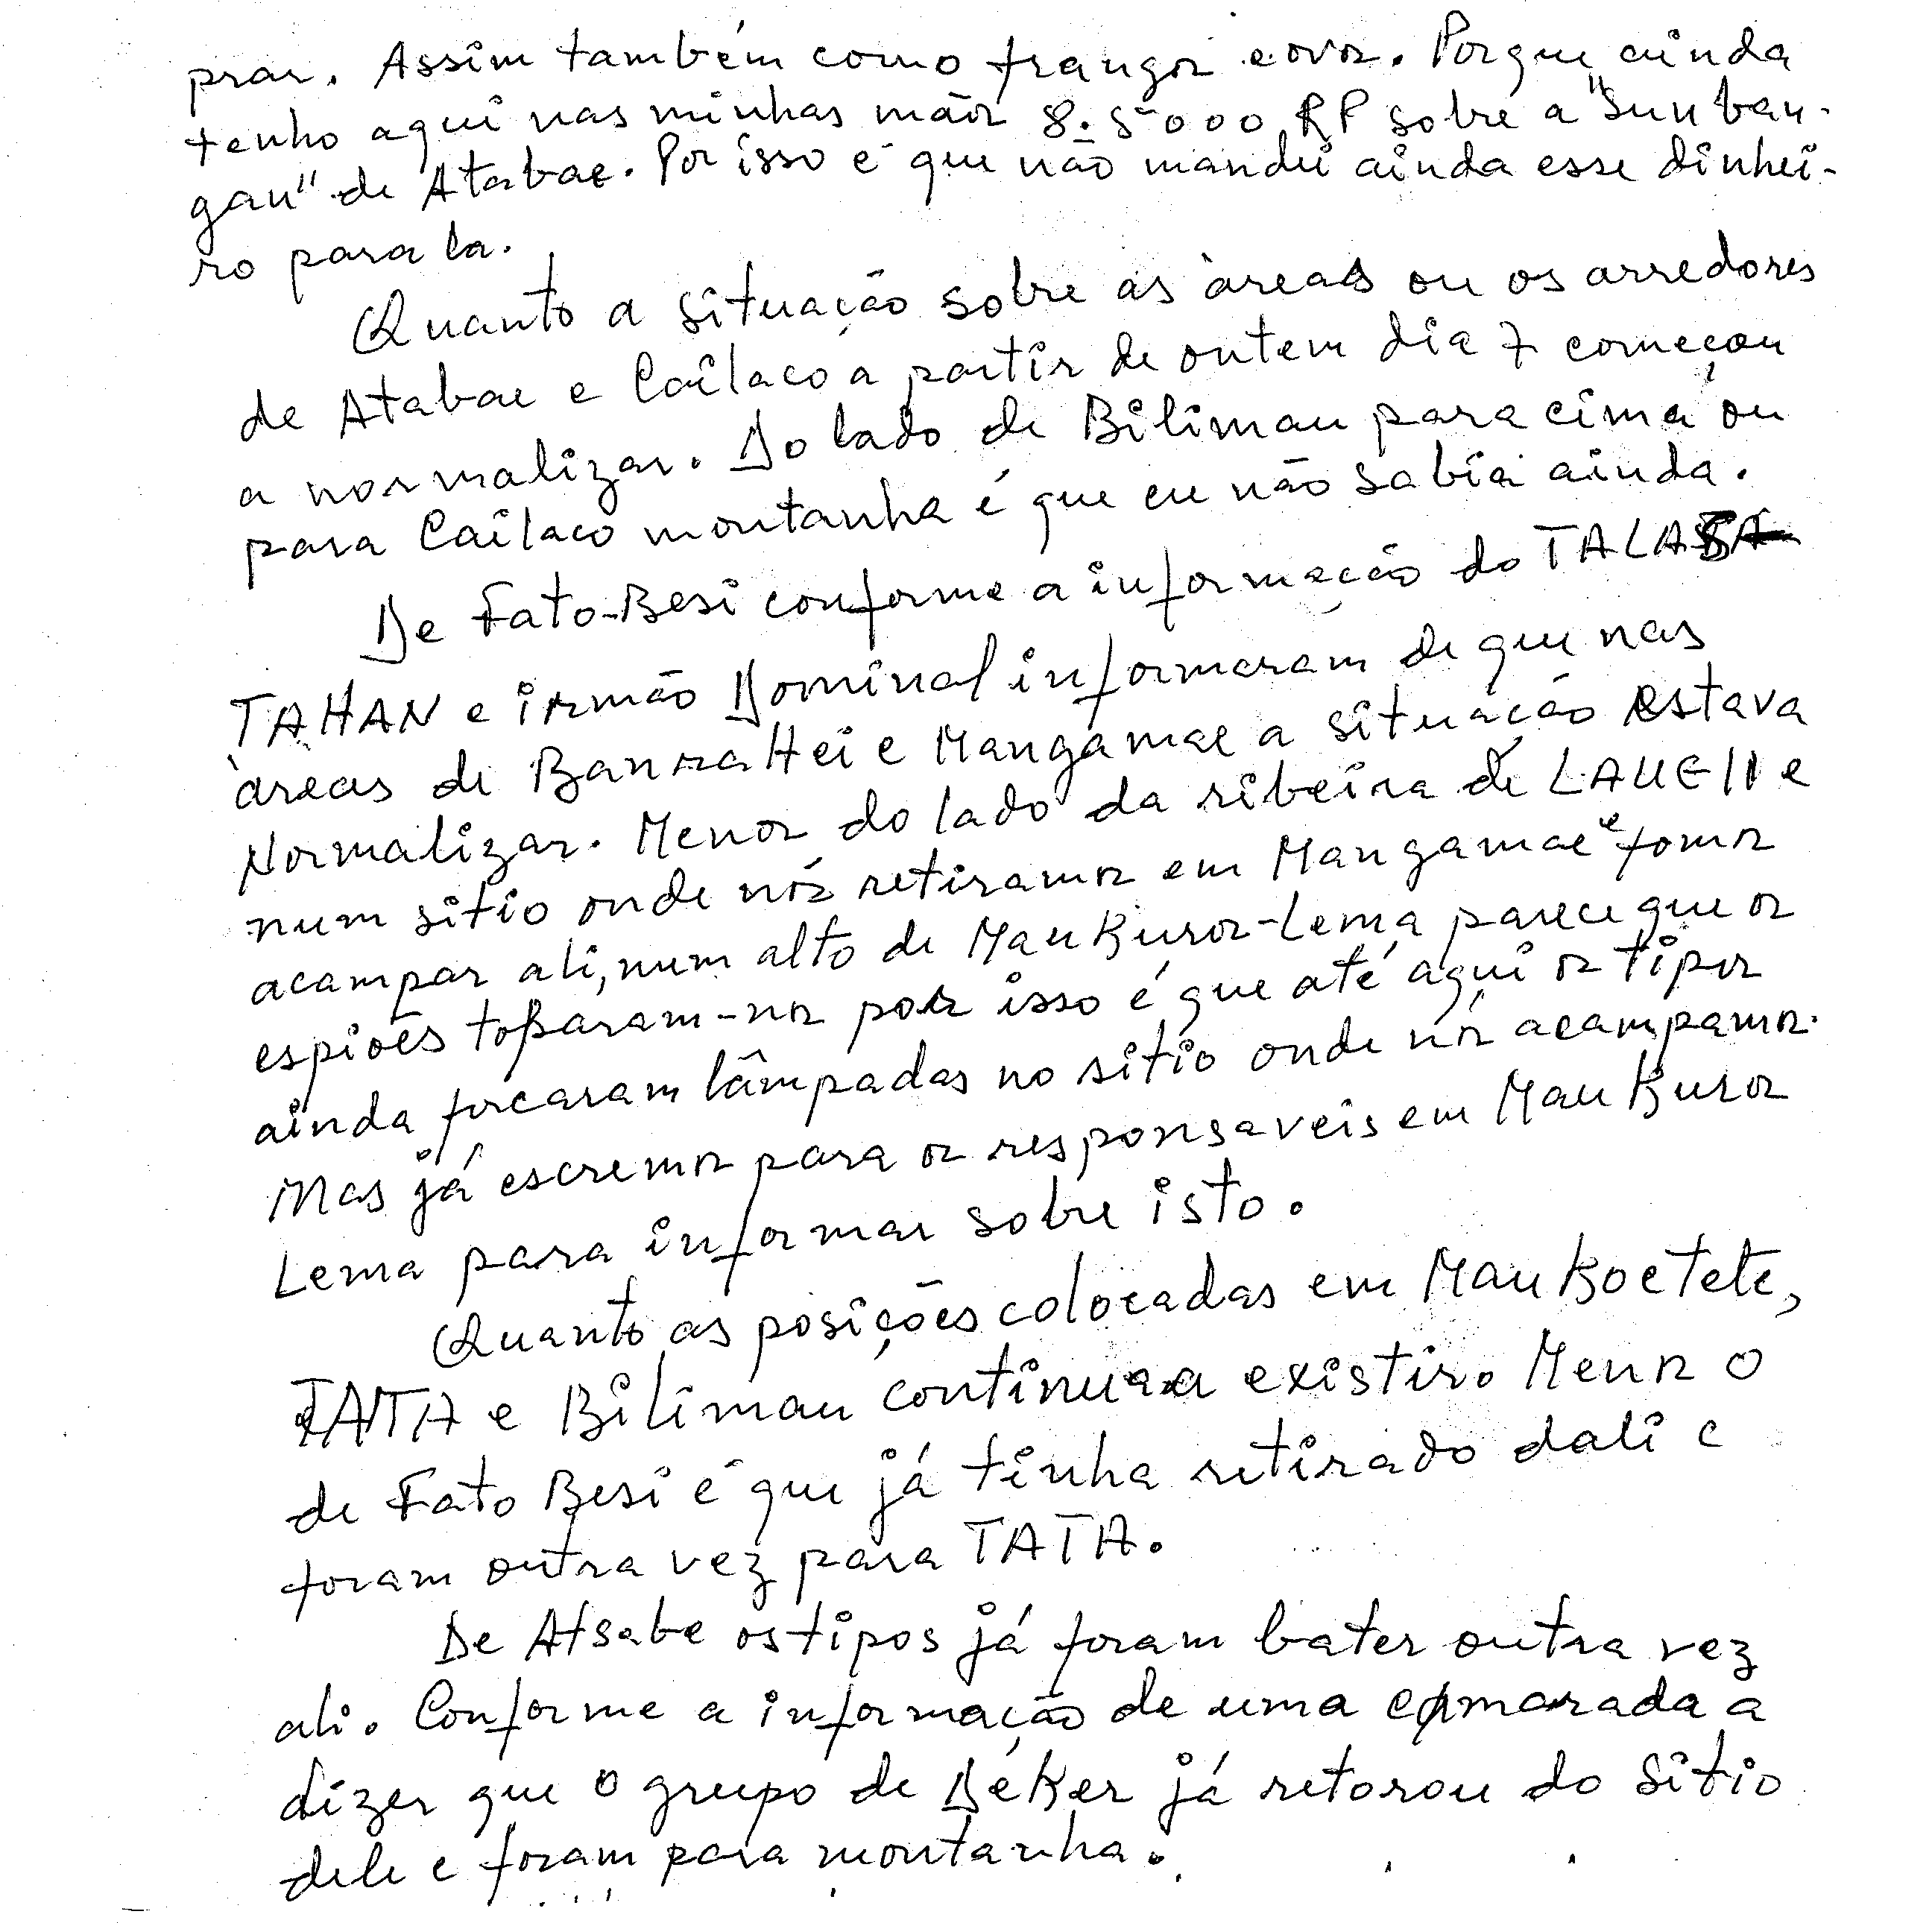 prar. Assim também como frangos e ovos. Porque ainda
tenho aqui nas minhas mãos 8.5000 RP sobre a "Sunban-
gan" de Atabae. Por isso é que não mandei ainda esse dinhei-
ro para la.
Quanto a situação sobre as àreas ou os arredores
de Atabae e Cailaco a partir de ontem dia 7 começou
a normalizar. Do lado de Bilimau para cima ou
para Cailaco montanha é que eu não sabia ainda.
De Fato-Besi conforme a informação do TALA
TAHAN e irmão Dominal informaram de que nas
àreas de Banza Hei e Mangamae a situação estava
Normalizar. Menos do lado da ribeira de LAUELI e
num sitio onde nós retiramos em Mangamae e fomos
acampar ali, num alto de Mau Kuros-Lema parece que os
espiões toparam-nos por isso é que até aqui os tipos
ainda focaram lâmpadas no sitio onde nós acampamos.
Mas já escremos para os responsaveis em Mau Kuros
Lema para informar sobre isto.
Quanto as posições colocadas em Mau Boe Tete,
TATA e Bilimau continua a existir. Menos o
de Fato Besi é que já tinha retirado dali e
foram outra vez para TATA.
De Atsabe os tipos já foram bater outra vez
ali. Conforme a informação de uma camarada a
dizer que o grupo de Déker já retorou do sitio
dele e foram para montanha.